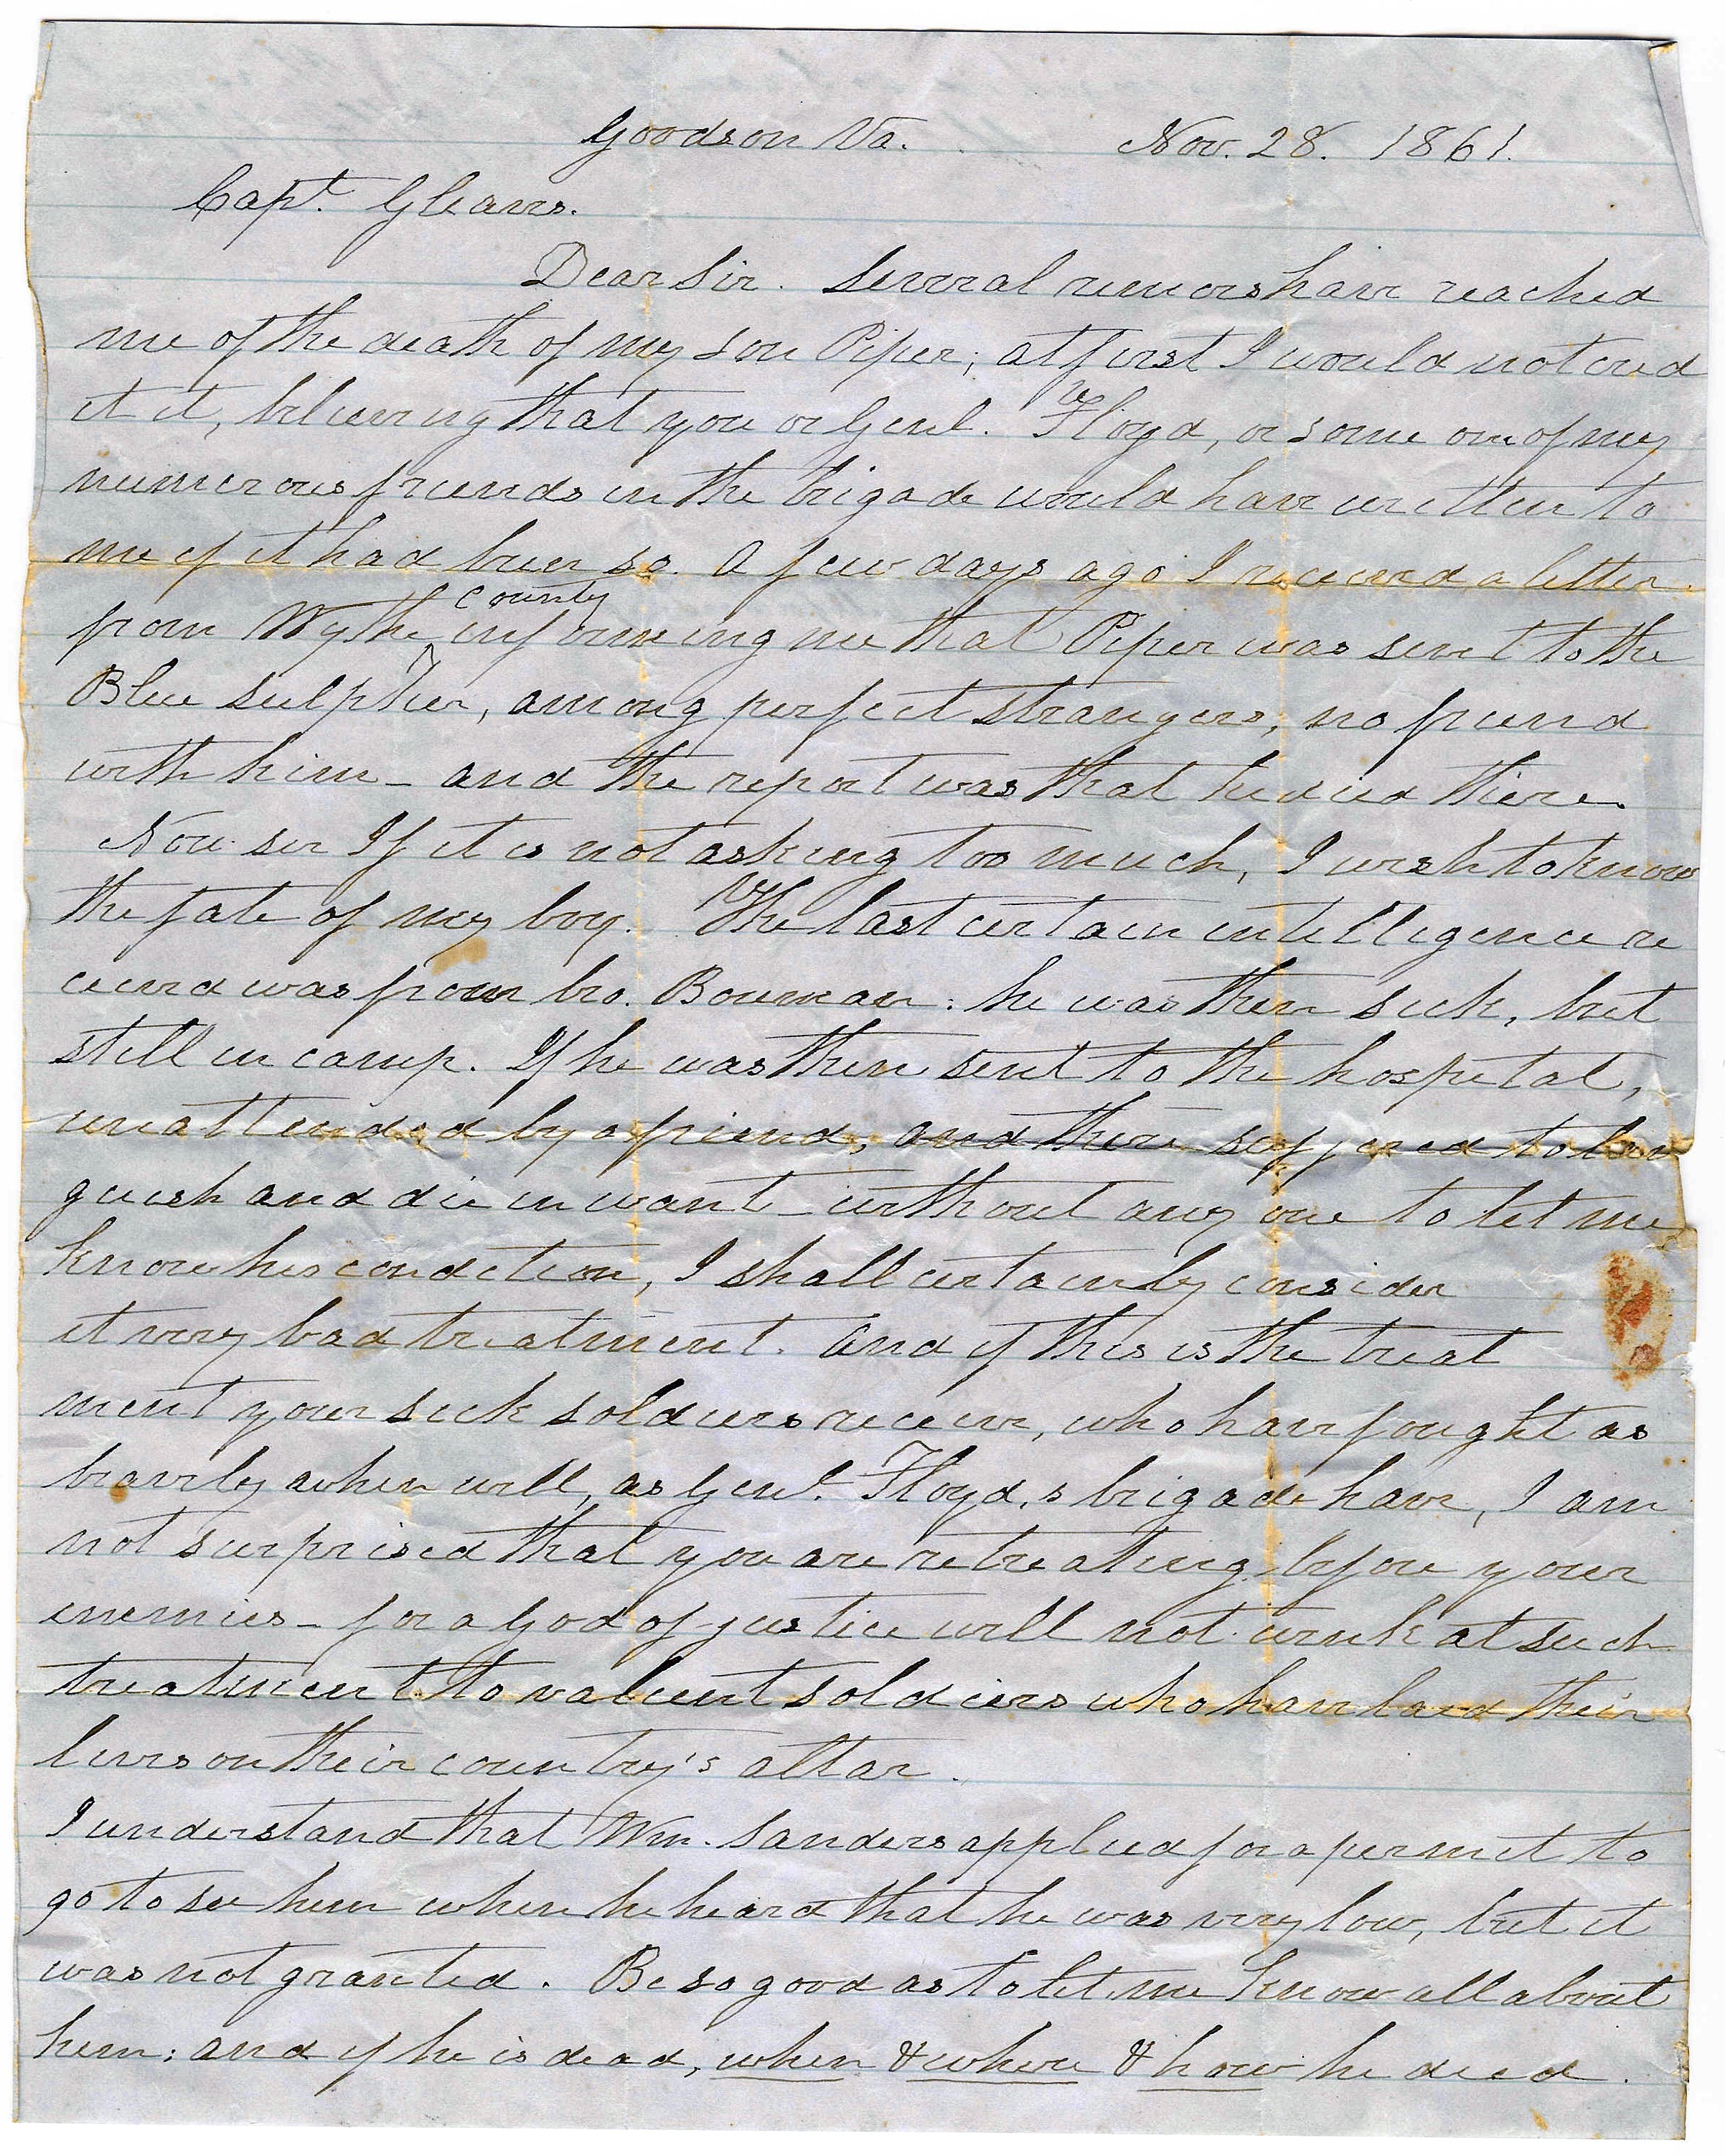 Goodson Va. Nov. 28. 1861.
Capt. Gleaves.
Dear Sir. Several rumors have reached
me of the death of my son Piper; at first I would not cred
it it, believing that you or Genl. Floyd, or some one of my
numerous friends in the brigade would have written to
me if it had been so. A few days ago I received a letter
from Wythe county informing me that Piper was sent to the
Blue sulpher, among perfect strangers, no friend
with him - and the report was that he died there.
Now sir If it is not asking too much, I wish to know
the fate of my boy. The last certain intelligence re
ceived was from bro. Bowman: he was then sick, but
still in camp. If he was then sent to the hospital,
unattended by a friend, and there suffered to lan
guish and die in want - without any one to let me
know his condition, I shall certainly consider
it very bad treatment. And if this is the treat
ment your sick soldiers receive, who have fought as
bravely when well, as Genl. Floyd,s brigade have, I am
not surprised that you are retreating before your
enemies - for a God of justice will not wink at such
treatment to valient soldiers who have laid their
lives on their country's altar.
I understand that Wm. Sanders applied for a permit to
go to see him when he heard that he was very low, but it
was not granted. Be so good as to let me know all about
him: and if he is dead, when & where & how he died.